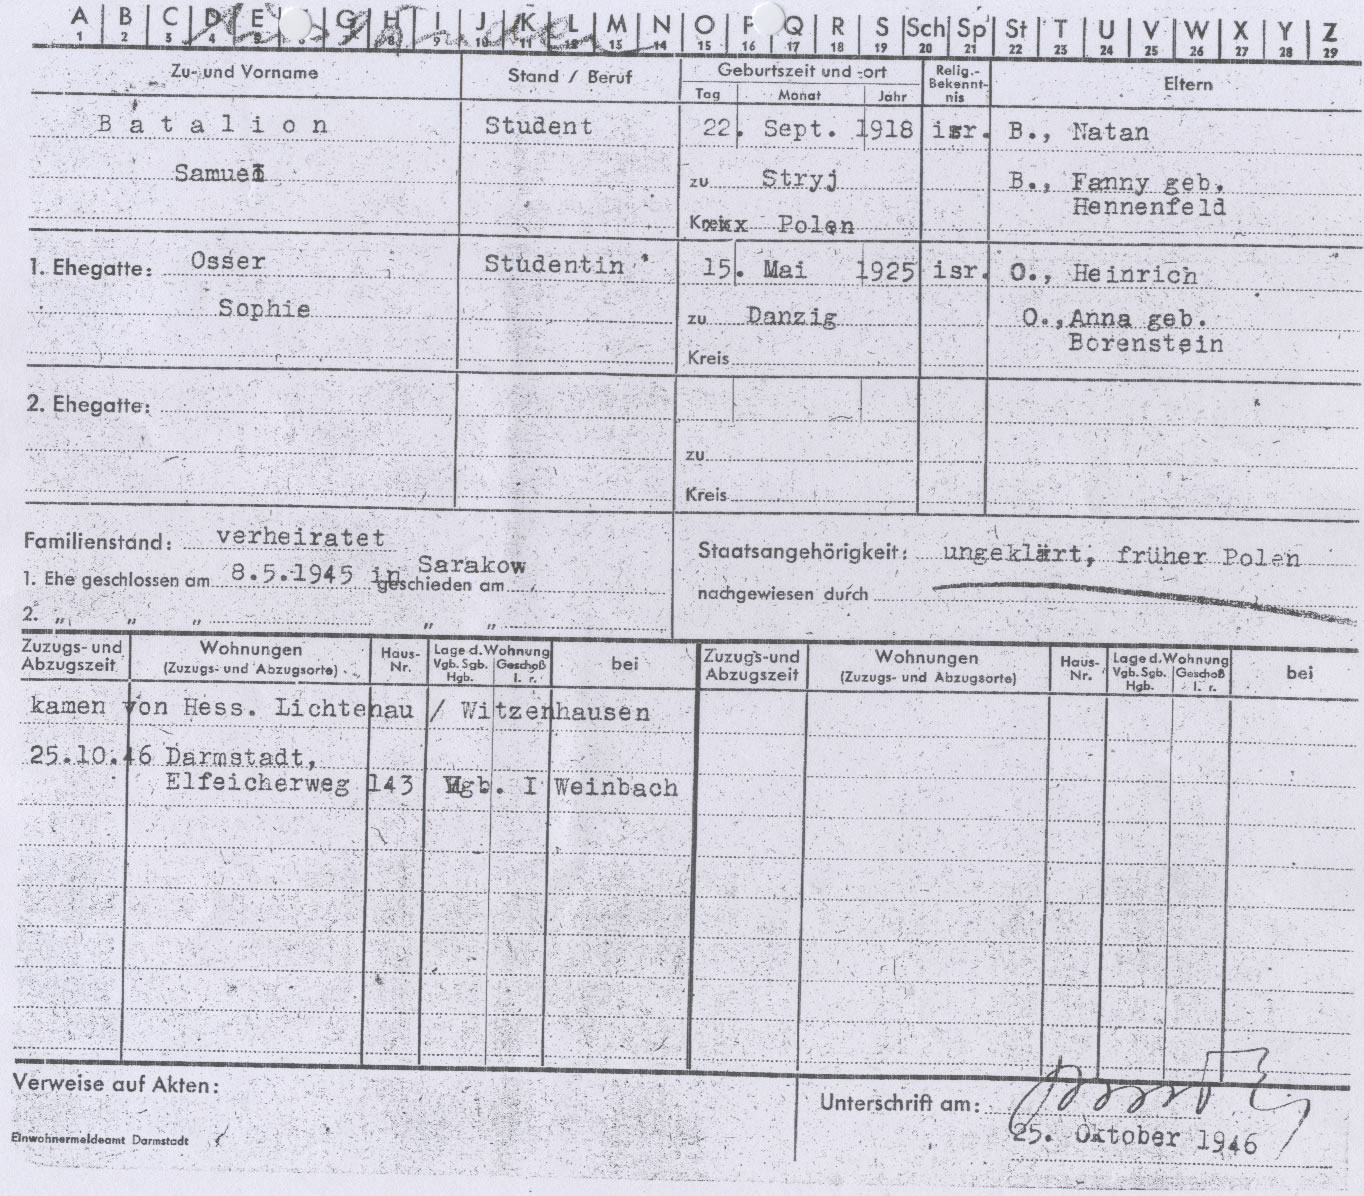 A B C D E G H I J K L M N O P Q R S Sch Sp St T U V W X Y Z
1 2 3 4 5 8 9 10 11 12 13 14 15 16 17 18 19 20 21 22 23 24 25 26 27 28 29
Zu- und Vorname Stand / Beruf Geburtszeit und -ort Relig.-Bekennt-nis Eltern
Tag Monat Jahr
Batalion Student 22. Sept. 1918 isr. B., Natan
Samuel zu Stryj B., Fanny geb.
Hennenfeld
Kreis Polen
1. Ehegatte: Osser Studentin 15. Mai 1925 isr. O., Heinrich
Sophie zu Danzig O., Anna geb.
Borenstein
Kreis
2. Ehegatte:
zu
Kreis
Familienstand: verheiratet Staatsangehörigkeit: ungeklärt, früher Polen
1. Ehe geschlossen am 8.5.1945 in Sarakow geschieden am
nachgewiesen durch
2. „ „ „ „ „
Zuzugs- und Abzugszeit Wohnungen (Zuzugs- und Abzugsorte) Haus-Nr. Lage d. Wohnung Vgb. Sgb. Hgb. Geschoß l. r. bei Zuzugs- und Abzugszeit Wohnungen (Zuzugs- und Abzugsorte) Haus-Nr. Lage d. Wohnung Vgb. Sgb. Hgb. Geschoß l. r. bei
kamen von Hess. Lichtenau / Witzenhausen
25.10.46 Darmstadt,
Elfeicherweg 143 Vgb. I Weinbach
Verweise auf Akten:
Unterschrift am:
25. Oktober 1946
Einwohnermeldeamt Darmstadt